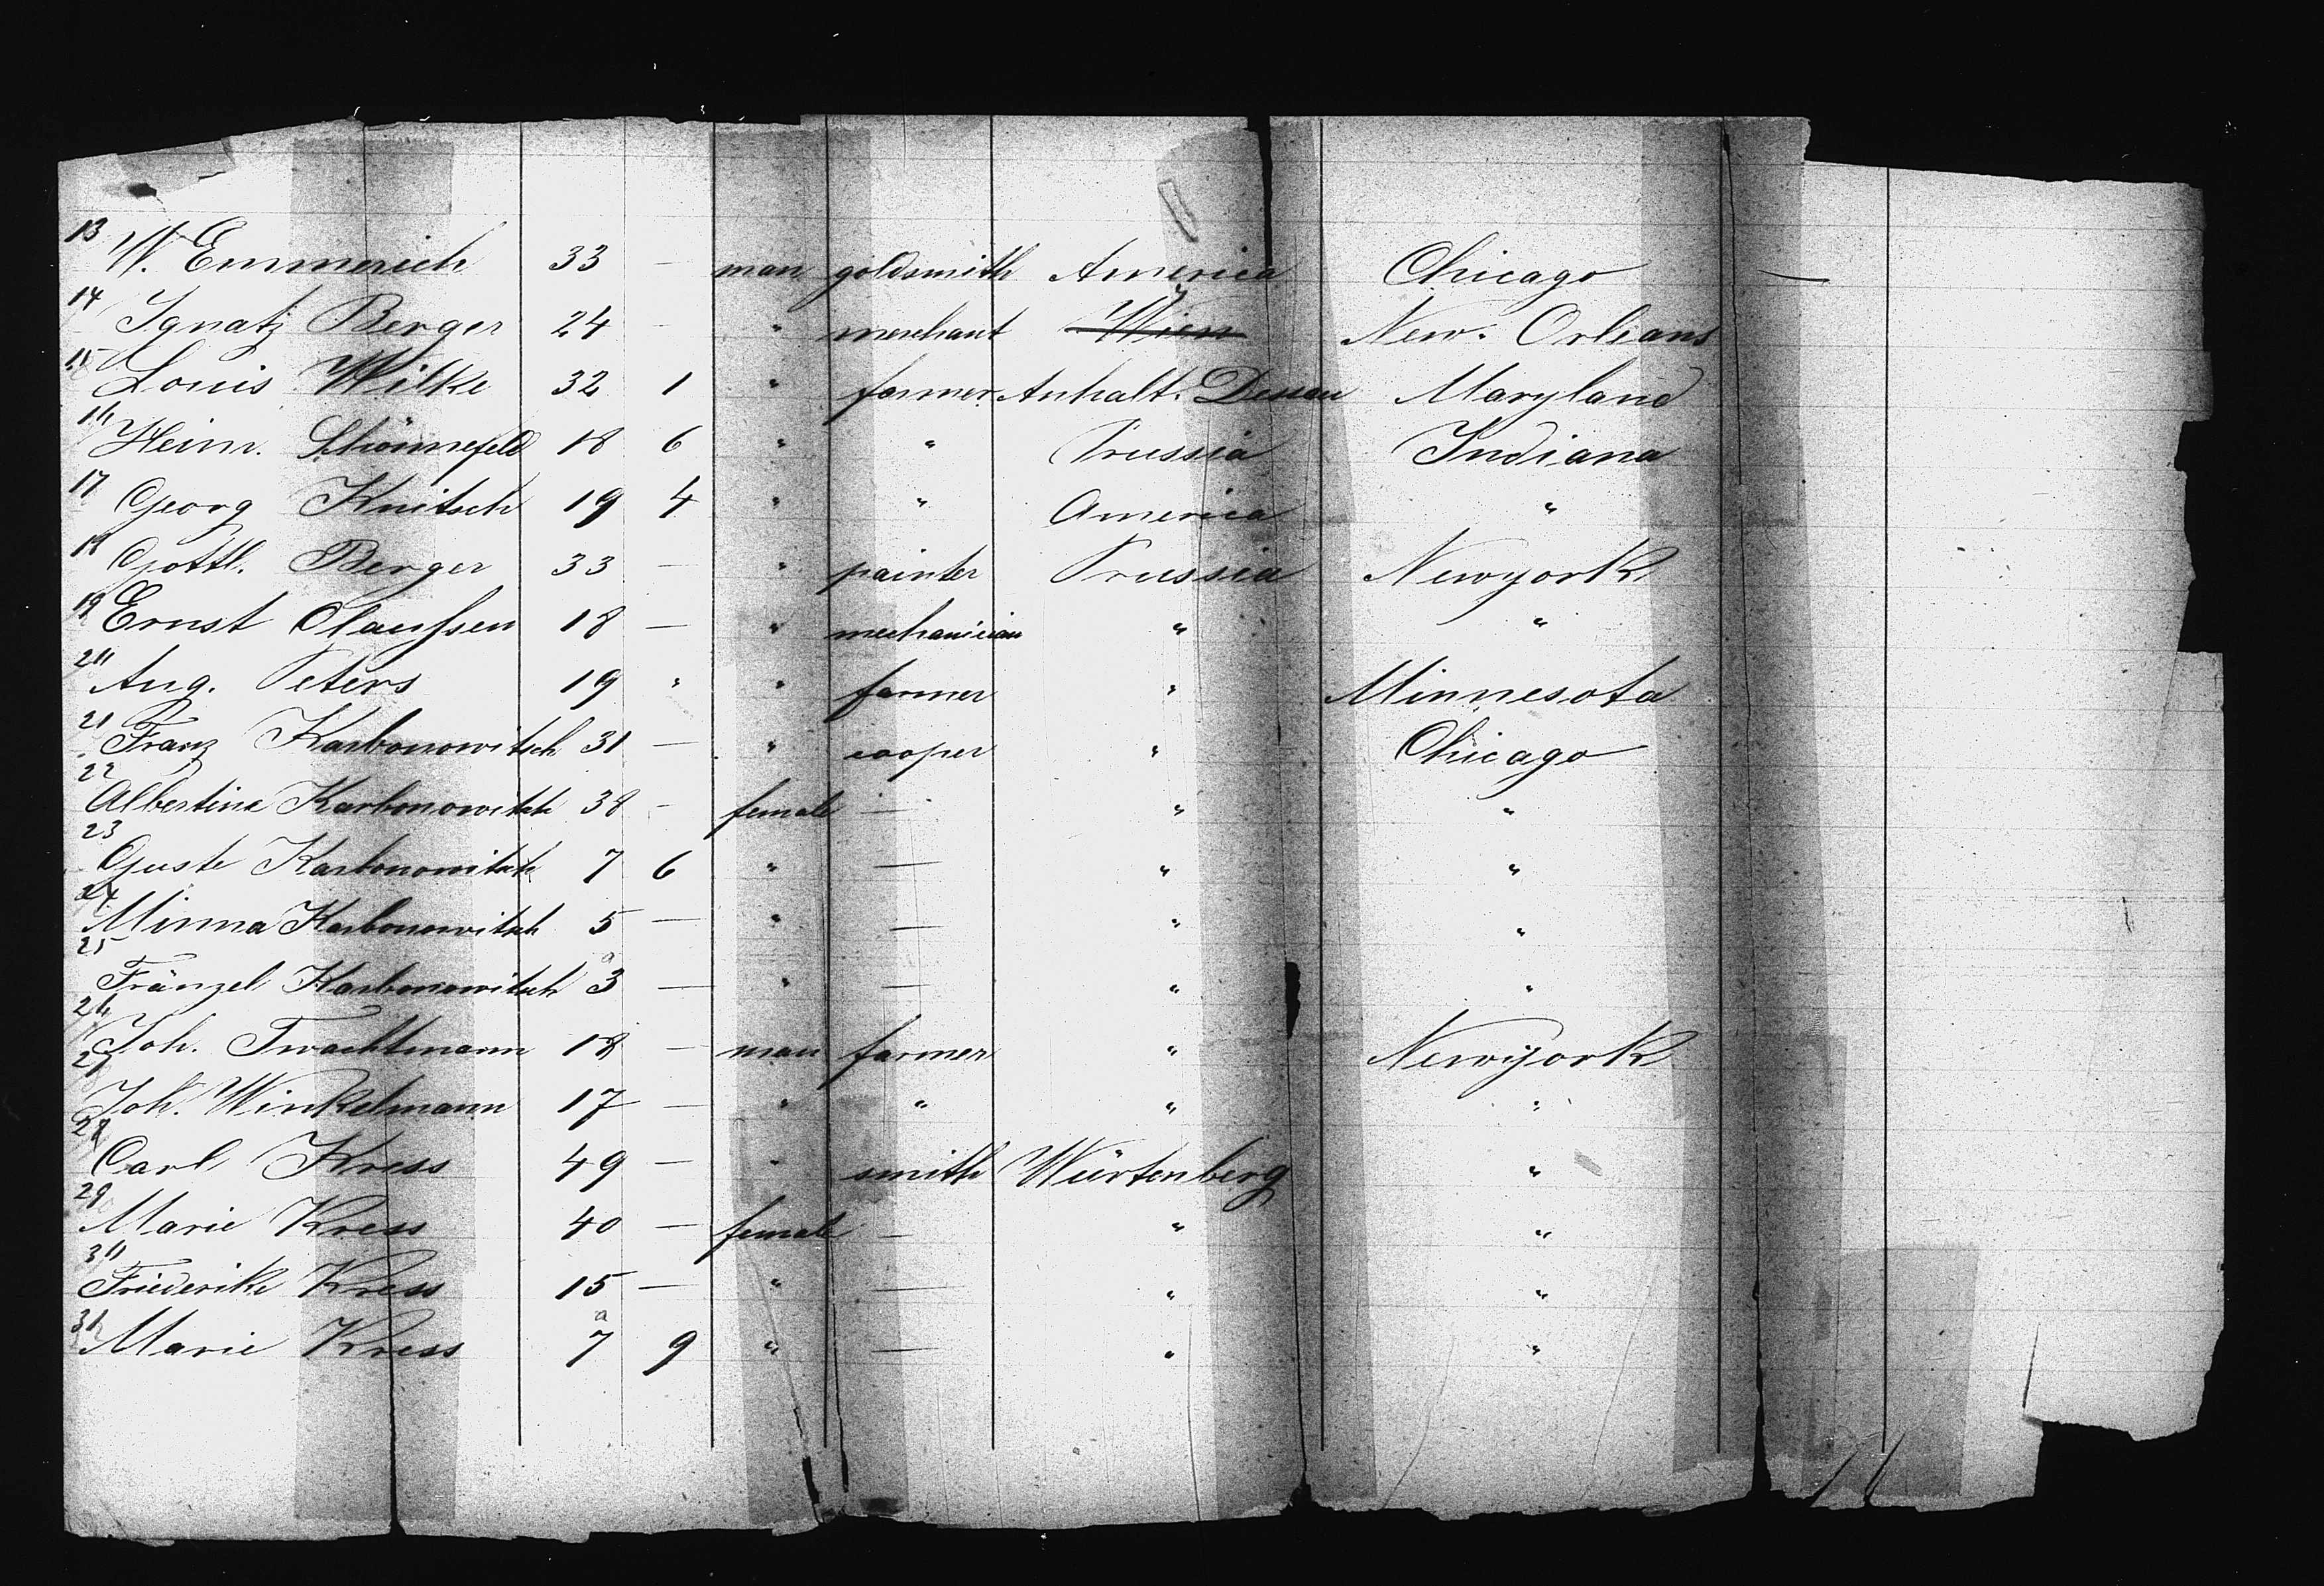 13 W. Emmerich 33 — man goldsmith America Chicago —
14 Ignatz Berger 24 — " merchant Wien New-Orleans
15 Louis Wilke 32 1 " farmer Anhalt-Dessau Maryland
16 Heinr. Schönnefeld 18 6 " " Prussia Indiana
17 Georg Knitsch 19 4 " " America "
18 Gottl. Berger 33 — " painter Prussia Newyork
19 Ernst Claussen 18 — " mechanician " "
20 Aug. Peters 19 " " farmer " Minnesota
21 Franz Karbonowitsch 31 — " cooper " Chicago
22 Albertine Karbonowitsch 38 — female — " "
23 Guste Karbonowitsch 7 6 " — " "
24 Minna Karbonowitsch 5 — " — " "
25 Fränzel Karbonowitsch 3 — " — " "
26 Joh. Twachtmann 18 — man farmer " Newyork
27 Joh. Winkelmann 17 — " " " "
28 Carl Kress 49 — " smith Würtenberg "
29 Marie Kress 40 — female — " "
30 Friederike Kress 15 — " — " "
31 Marie Kress 7 9 " — " "